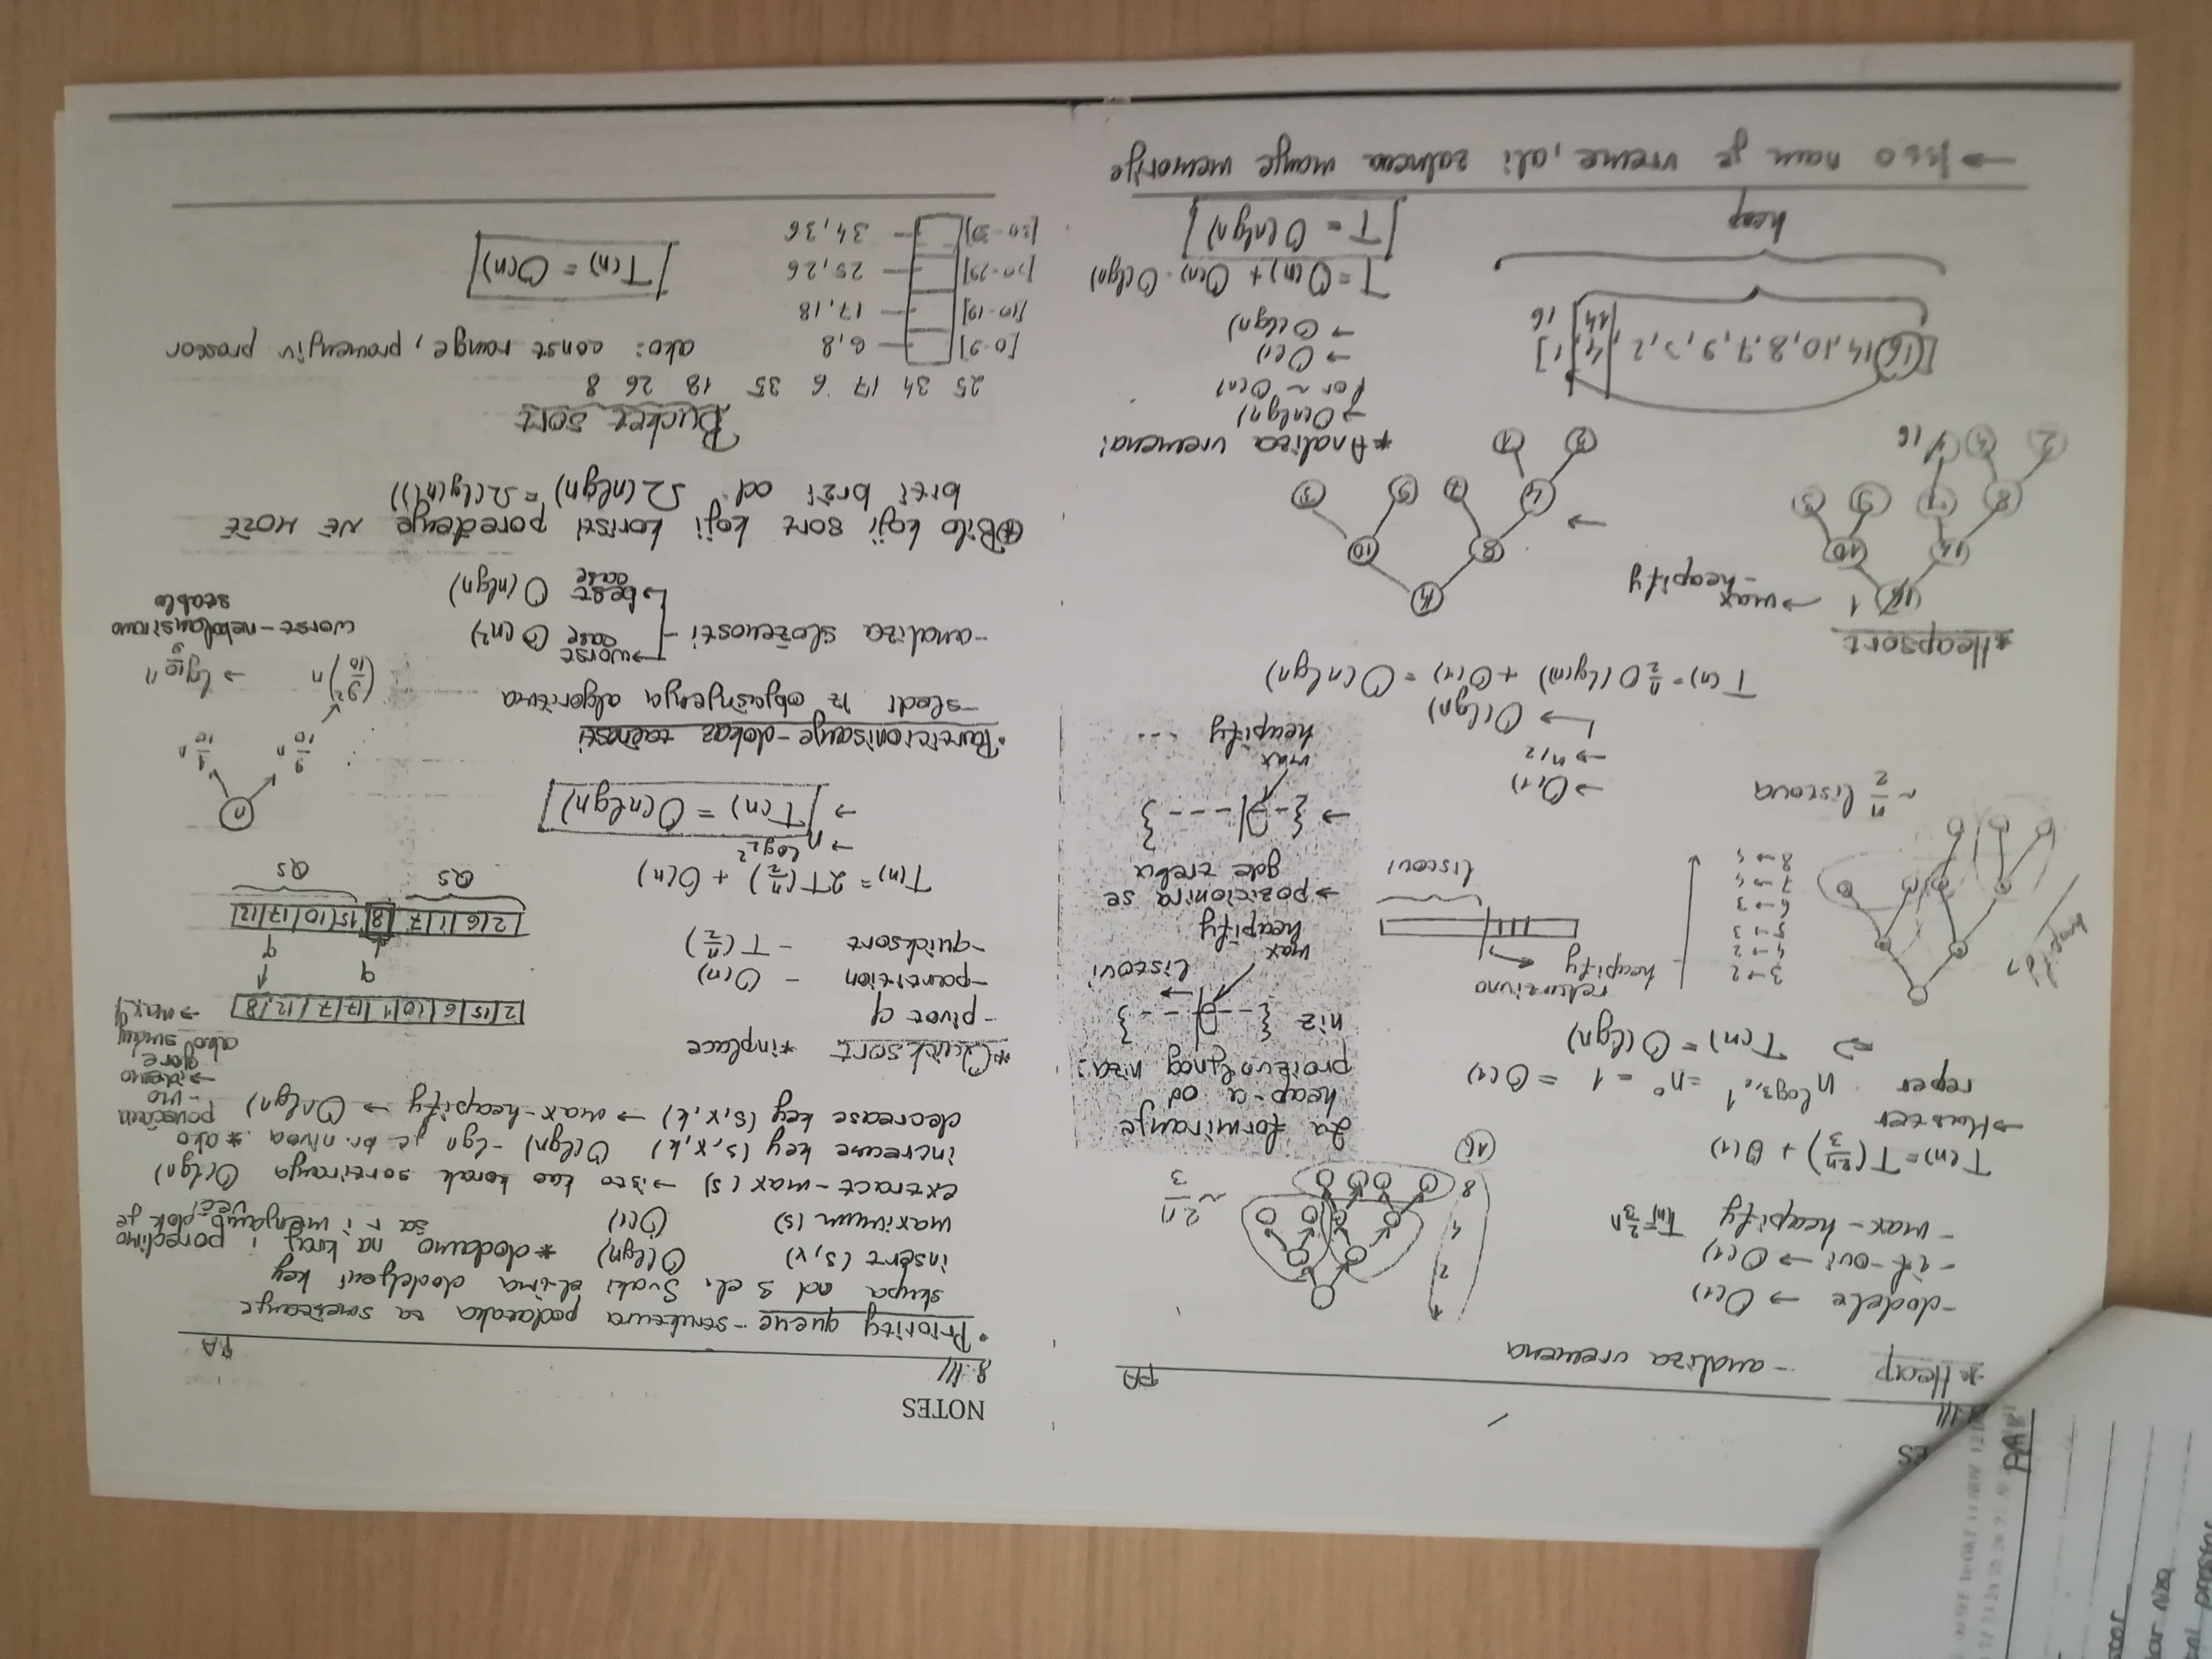 PA
* Heap - analiza vremena PA
- dodele → O(1)
- if-ovi → O(1)
- max-heapify T(n)=2/3 n
1
2
4
8
16
~ 2n/3
T(n) = T(2n/3) + O(1)
→ Master
reper n^log3/2 1 = n^0 = 1 = O(1)
⇒ T(n) = O(lgn)
Za formiranje
heap-a od
proizvoljnog niza:
niz {_ _ _ | _ _ _}
listovi
max
heapify
→ pozicionira se
gde treba
→ {_ _ | _ _ _ _}
max
heapify ...
heapify
3→2
4→2
5→3
6→3
7→4
8→4
rekurzivno
heapify
listovi
~ n/2 listova
→ O(1)
→ n/2
→ O(lgn)
T(n) = n/2 O(lg(n)) + O(1) = O(nlgn)
* Heapsort
16 1 → max
-heapify
14 10
8 7 9 3
2 4 1 16
→
14
8 10
4 7 9 3
2 1
[16, 14, 10, 8, 7, 9, 3, 2, |4,| 1]
14 16
heap
* Analiza vremena:
→ O(nlgn)
for ~ O(n)
→ O(1)
→ O(lgn)
T = O(n) + O(n) · O(lgn)
T = O(nlgn)
→ Isto nam je vreme, ali manje memorije
NOTES
8.III
PA
· Priority queue - struktura podataka za smeštanje
skupa od s el. Svaki el. ima dodeljeni key
insert (s, x) O(lgn) * dodamo na kraj i poredimo
sa r i menjamo dok je
veći
maximum (s) O(1)
extract-max (s) → isto kao korak sortiranja O(lgn)
increase key (s, x, k) O(lgn) - lgn je br. nivoa * ako
povećam
-mo
→ idemo
gore,
ako
→ max
decrease key (s, x, k) → max-heapify → O(lgn)
* Quicksort * inplace
- pivot q
- partition - O(n)
- quicksort - T(n/2)
2|15|6|10|1|17|7|12|8
q
q
2|6|1|7|8|15|10|17|12
QS QS
T(n) = 2T(n/2) + O(n)
→ n^log2 2
→ T(n) = O(nlgn)
n
9/10 n 1/10 n
(9/10)²n → lg10/9 n
worst - nebalansirano
stablo
· Particionisanje - dokaz tačnosti
- sledi iz objašnjenja algoritma
- analiza složenosti → worst case O(n²)
→ best case O(nlgn)
* Bilo koji sort koji koristi poređenje NE MOŽE
biti brži od Ω(nlgn) = Ω(lg(n!))
Bucket sort
25 34 17 6 35 18 26 8
[0-9] — 6, 8
[10-19] — 17, 18
[20-29] — 25, 26
[30-39] — 34, 36
ako: const range, promenjiv prostor
T(n) = O(n)